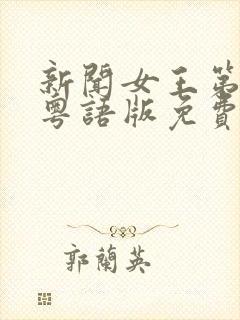 新聞女王第
粵語版免費
郭蘭英